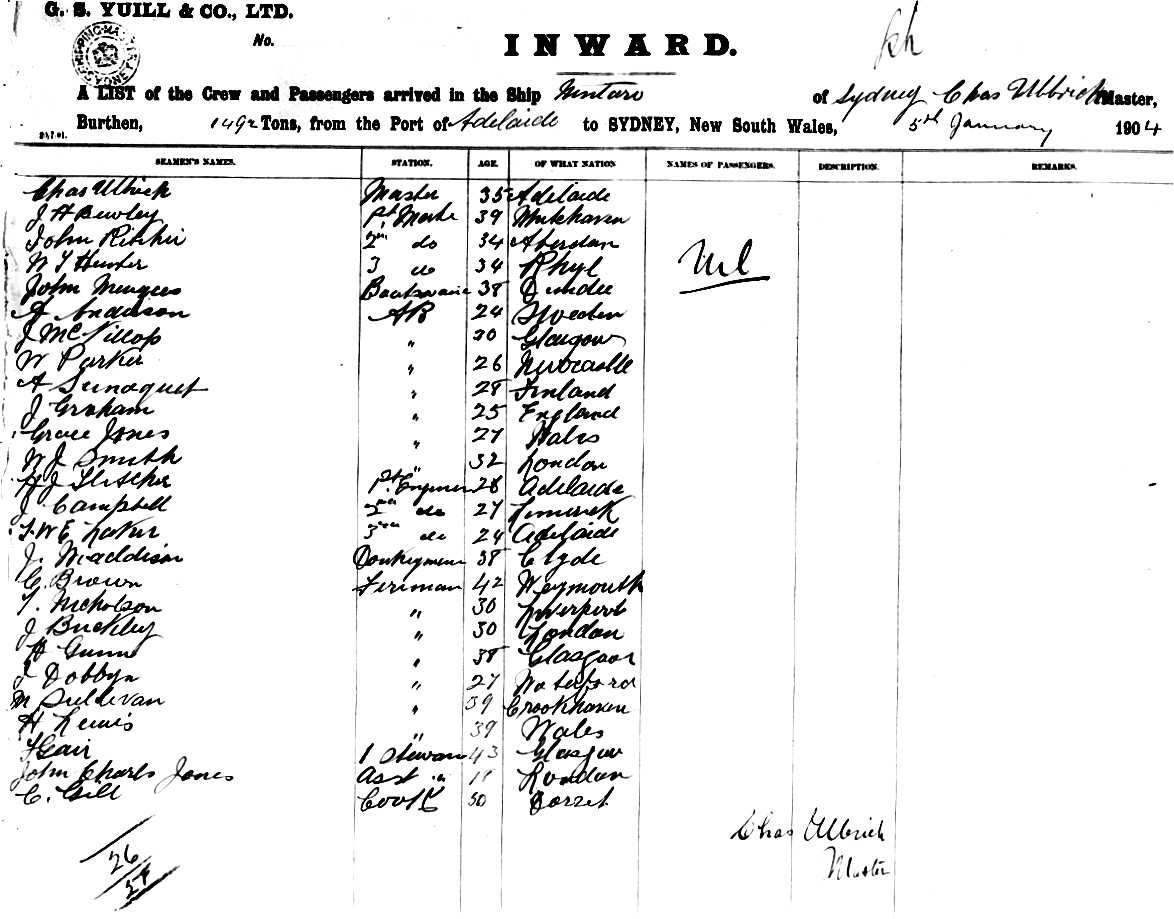 G. S. YUILL & CO., LTD.
No.
INWARD.
A LIST of the Crew and Passengers arrived in the Ship Mintaro of Sydney Chas Ulbrick Master,
Burthen, 1492 Tons, from the Port of Adelaide to SYDNEY, New South Wales, 5th January 1904
SEAMEN'S NAMES. STATION. AGE. OF WHAT NATION NAMES OF PASSENGERS. DESCRIPTION. REMARKS.
Chas Ulbrick Master 35 Adelaide
J H Bewley 1st Mate 39
John Ritchie 2nd do 34 Aberdeen
W T Hunter 3 do 34 Rhyl
Nil
John Menzies Boatswain 38 Dundee
A Anderson AB 24 Sweden
J McKillop " 30 Glasgow
W Parker " 26 Newcastle
A " 28 Finland
J Graham " 25 England
Jones " 27 Wales
W J Smith " 32 London
H J Fletcher 1st Engineer 28 Adelaide
J Campbell 2nd do 27 Limerick
T. W E Laker 3 do 24 Adelaide
J. Maddison Donkeyman 38 Clyde
C. Brown Fireman 42 Weymouth
T. Nicholson " 30 Liverpool
J Buckley " 30 London
H Gunn " 38 Glasgow
J Dobbyn " 27 Waterford
M Sullivan " 39 Crookhaven
H Lewis " 39 Wales
F Gair 1 Steward 43 Glasgow
John Charls Jones Asst " 18 London
C. Gill Cook 50 Dorset
Chas Ulbrick
Master
26